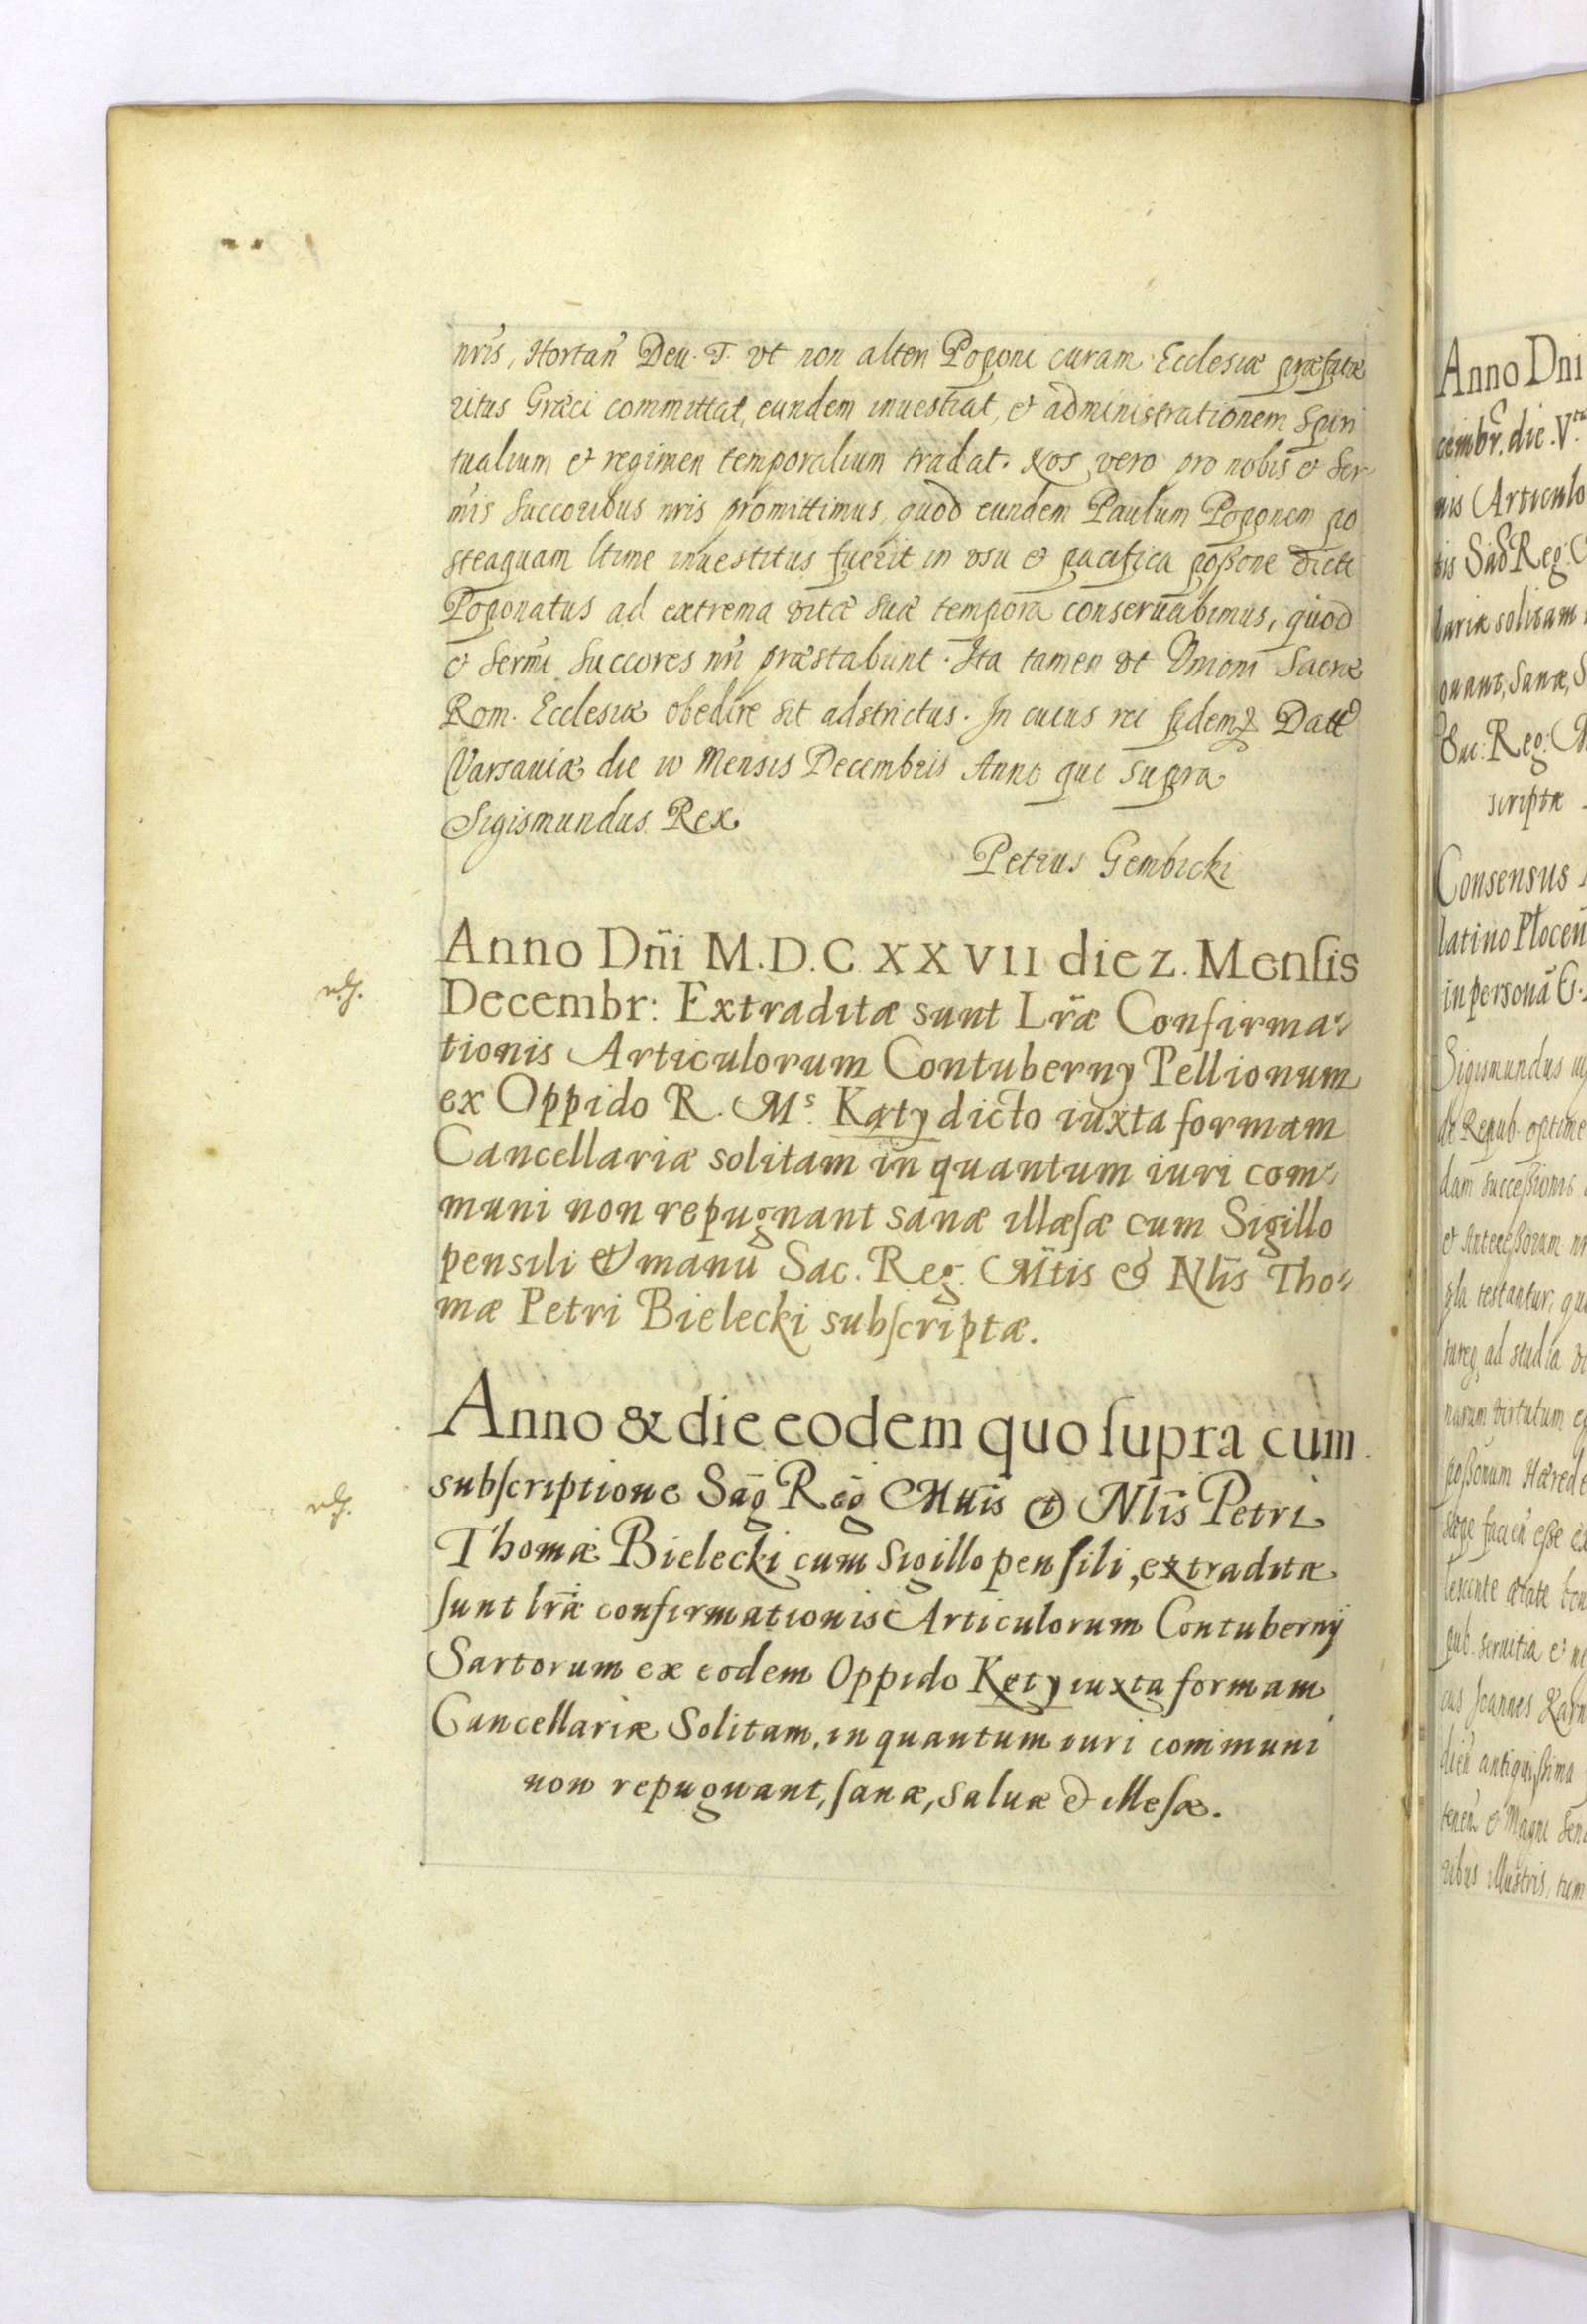 nris, Hortan̄ Deu. T. vt non alteri Popom curam Ecclesiæ præfatæ
ritus Græci committat, eundem inuestiat, et administrationem spiri
tualium et regimen temporalium tradat. Nos vero pro nobis et Ser
mis Succoribus nris promittimus, quod eundem Paulum Poponem po
steaquam ltime inuestitus fuerit in vsu et pacifica poßone dicti
Poponatus ad extrema vitæ suæ tempora conseruabimus, quod
et Sermi Succores nri præstabunt. Ita tamen vt Vnioni Sacræ
Rom. Ecclesiæ obedire sit adstrictus. In cuius rei fidem Datt
Varsauiæ die Mensis Decembris Anno qui supra
Sigismundus Rex
Petrus Gembicki
Anno Dn̄i M.D.C XXVII die 2. Menſis
Decembr: Extraditæ sunt Lr̄æ Confirma-
tionis Articulorum Contuberny Pellionum
ex Oppido R. Mˢ. Kąty dicto iuxta formam
Cancellariæ solitam in quantum iuri com-
muni non repugnant sanæ illæſæ cum Sigillo
pensili et manu Sac. Reg. Mtis & Nlis Tho-
mæ Petri Bielecki subſcriptæ.
Anno & die eodem quo ſupra cum
subſcriptione Sac̄ Reḡ Mttis et Nlis Petri
Thomæ Bielecki cum Sigillo penſili, extraditæ
ſunt lr̄æ confirmationis Articulorum Contubernÿ
Sartorum ex eodem Oppido Kęty iuxta formam
Cancellariæ Solitam, in quantum iuri communi
non repugnant, ſanæ, saluæ & illeſæ.
Anno Dni
cembr. die .V.
nis Articulo
tis Sac Reg.
lariæ solitam
gnant, Sanæ, S
Sac: Reg: M
scriptæ
Consensus
latino Plocen̄
in personā G.
Sigismundus
de Repub. optime
dam succeßionis
et Anteceßorum
testantur, qu
ad studia
narum virtutum
poßonum Hærede
sæpe facien̄ eße
lescente ætate
pub. seruitia et
cus Joannes Karn
dien̄ antiquiſsima
tenen̄ et Magni Sen
ribus illustris, tum